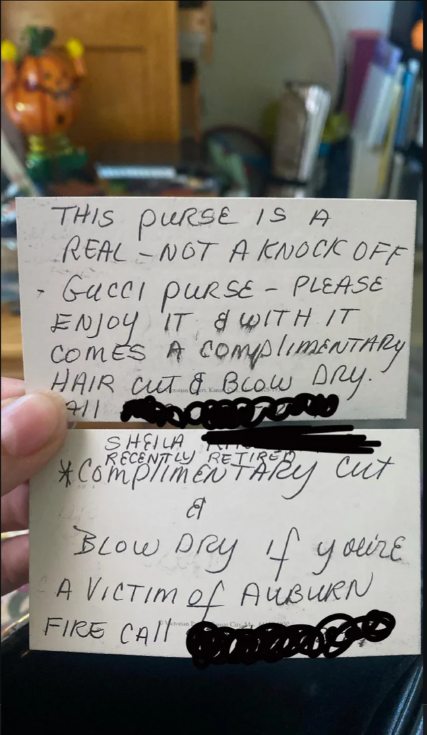 THIS PURSE IS A
REAL - NOT A KNOCK OFF
- GUCCI PURSE - PLEASE
ENJOY IT & WITH IT
COMES A COMPLIMENTARY
HAIR CUT & BLOW DRY.
CAll
SHEILA
RECENTLY RETIRED
*COMPLIMENTARY CUT
&
BLOW DRY If you're
A VICTIM of AUBURN
FIRE CAll